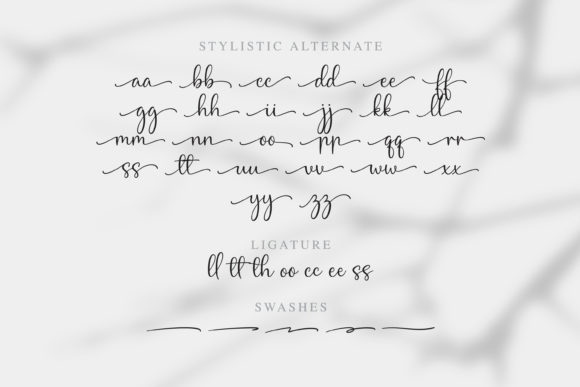 STYLISTIC ALTERNATE
aa bb cc dd ee ff
gg hh ii jj kk ll
mm nn oo pp qq rr
ss tt uu vv ww xx
yy zz
LIGATURE
ll tt th oo cc ee ss
SWASHES